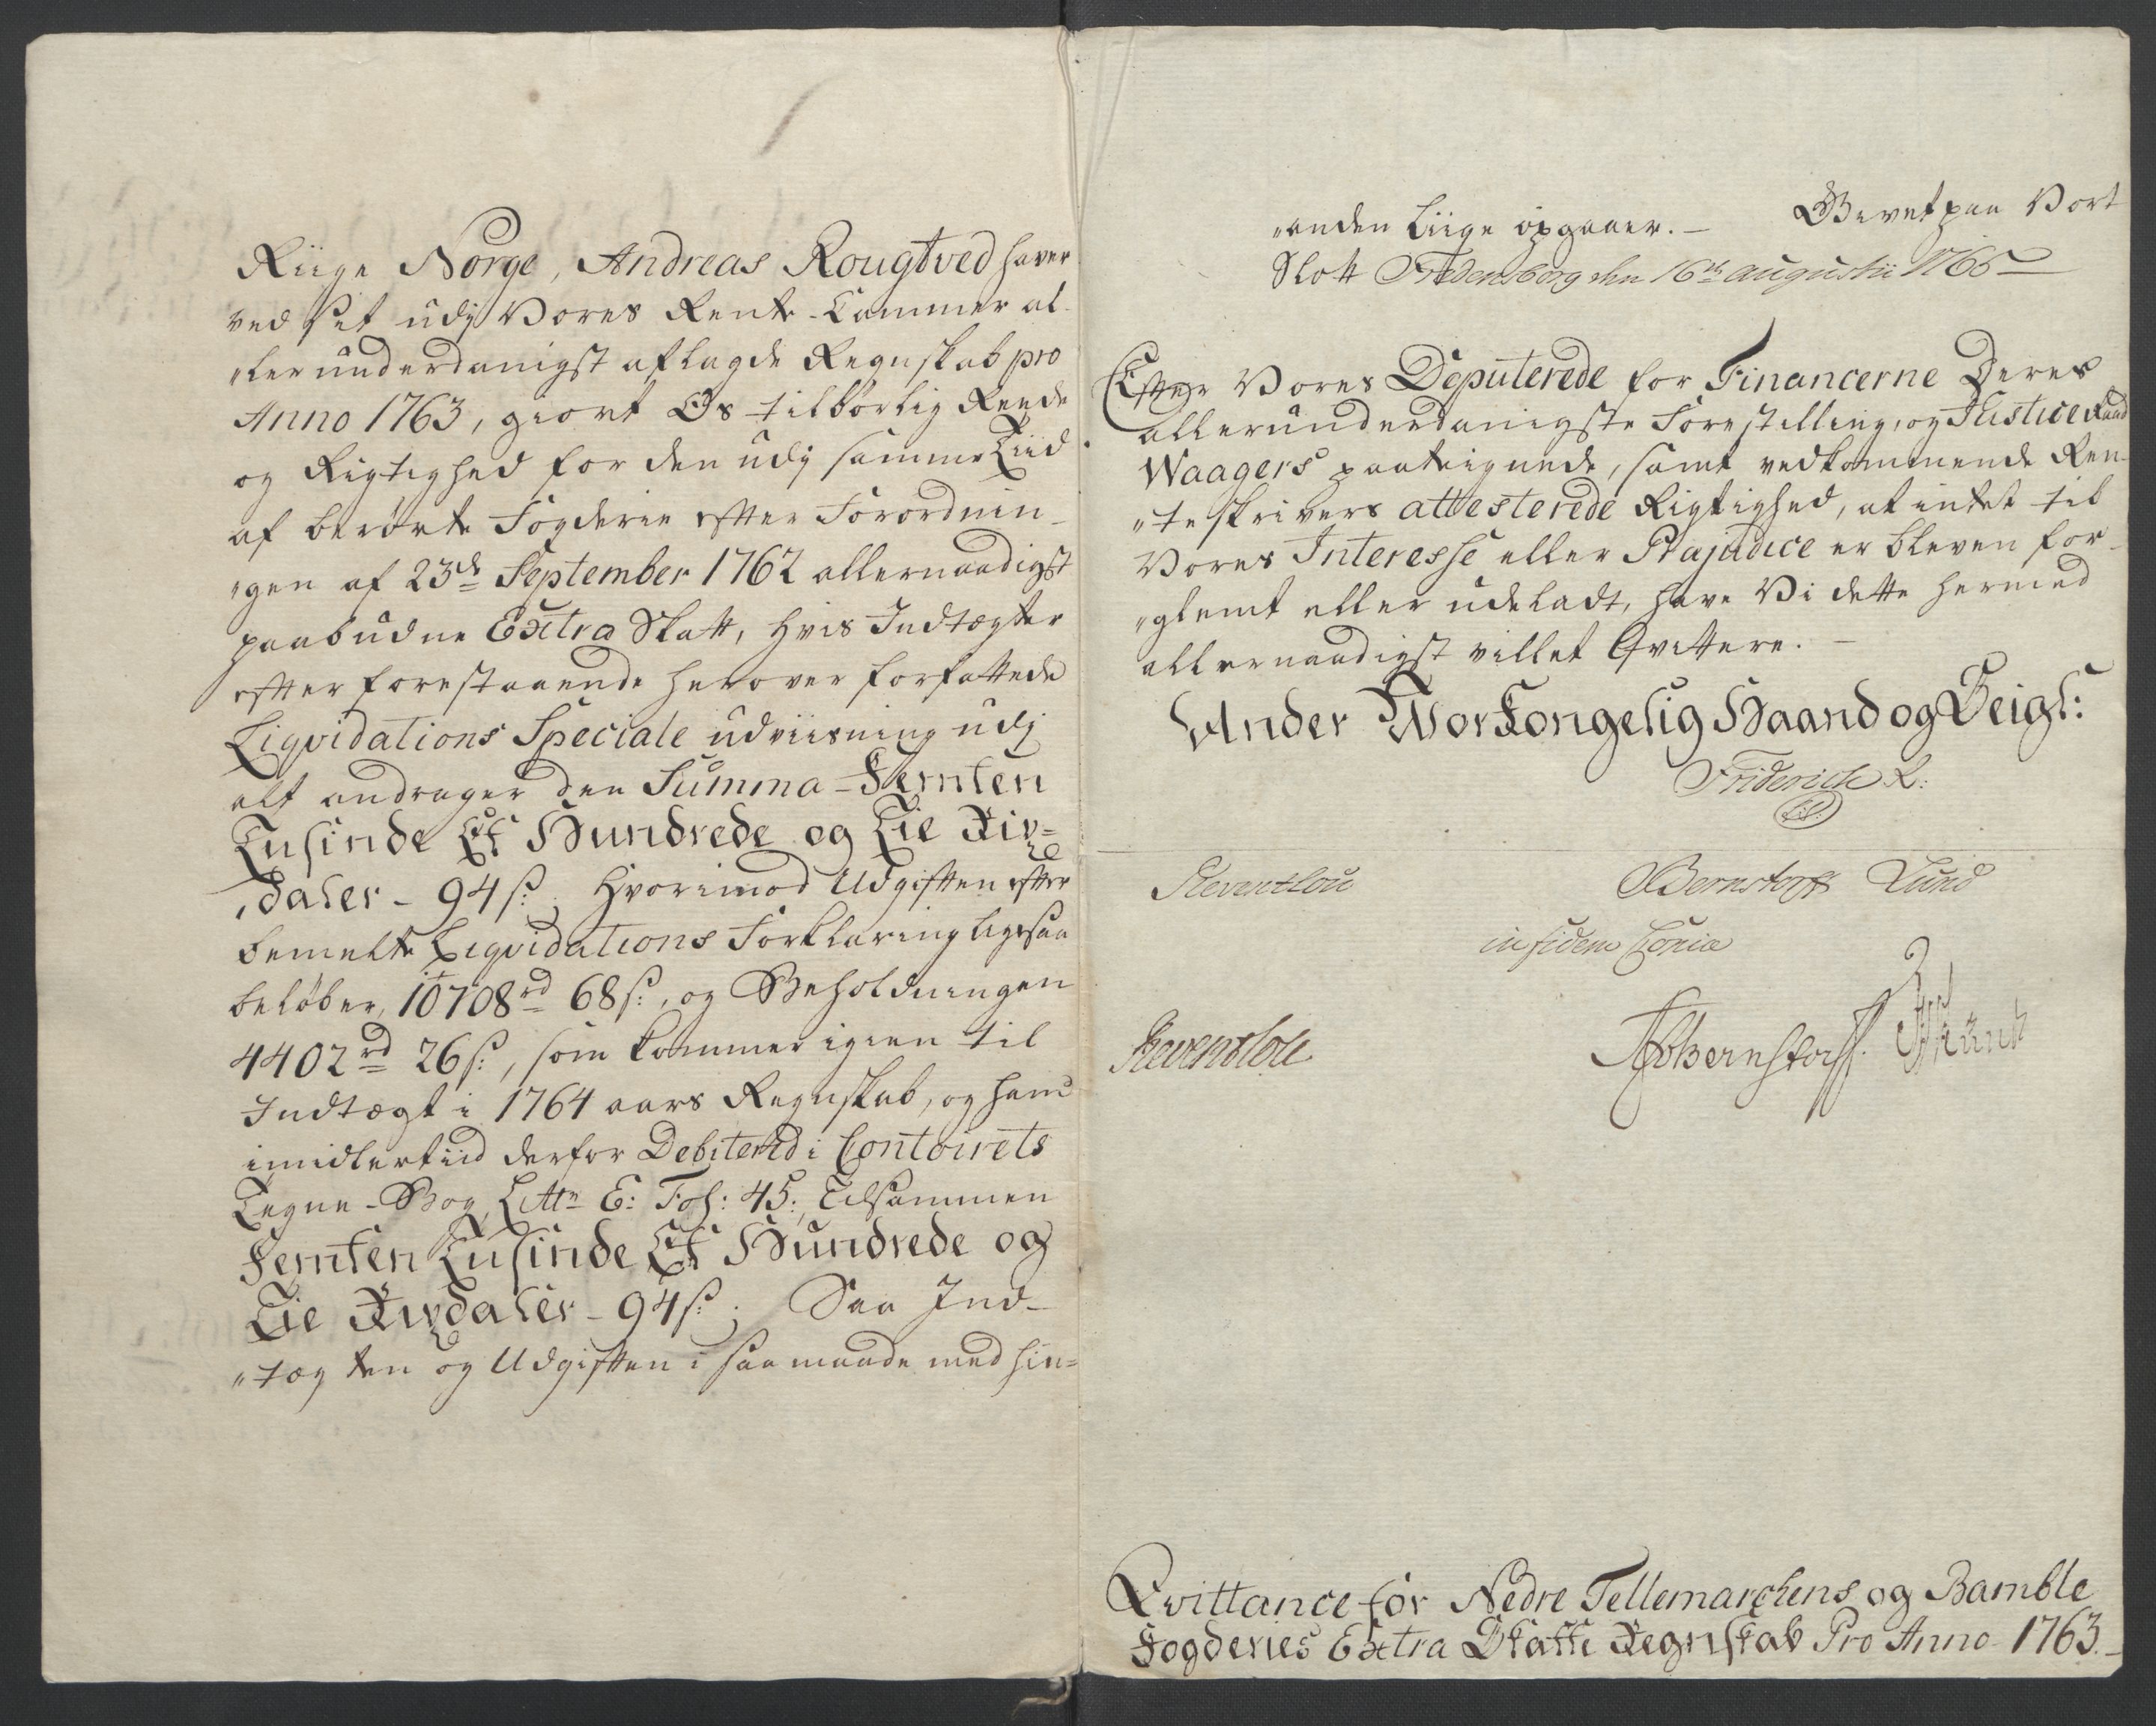 Riige Norge, Andreas Rougtved haver
ved sit udj Vores Rente-Cammer al-
„lerunderdanigst aflagde Regnskab pro
Anno 1763, giort Os tilbørlig Reede
og Rigtighed for den udj samme Tiid
af berørte Fogderie efter Forordnin-
„gen af 23de September 1762 allernaadigst
paabudne Extra Skatt, hvis Indtægter
efter forestaaende herover forfattede
Liqvidations Speciale udviisning udj
alt andrager den Summa - Femten
Tusinde Et Hundrede og Tie Rix-
„daler - 94 s; Hvorimod Udgiften efter
bemelte Liqvidations Forklaring ligesaa
beløber, 10708 rd 68 s:, og Beholdningen
4402 rd 26 s:, som kommer igien til
Indtægt i 1764 aars Regnskab, og hand
imidlertiid derfor Debitered i Contoirets
Tegne-Bog Litt: E: Fol: 45:, Tilsammen
Femten Tusinde Et Hundrede og
Tie Rixdaler - 94 s; Saa Ind-
„tægten og Udgiften i saa maade med hin-
„anden liige opgaaer. — Givet paa Vort
Slott Fredensborg den 16de augustii 1765
Efter Vores Deputerede for Financerne Deres
allerunderdanigste Forestilling, og Justice Raad
Waagers paategnede, samt vedkommende Ren-
„teskrivers attesterede Rigtighed, at intet til
Vores Interesse eller Præjudice er bleven for-
„glemt eller udeladt, have Vi dette hermed
allernaadigst villet Qvittere. —
Under Vor Kongelig Haand og Zeigl:
Friderich R:
Reventlou Bernstorff Lund
in fidem Copiæ
Reventlou Bernstorff
Qvittance for Nedre Tellemarchens og Bamble
Fogderies Extra Skatte Regnskab Pro Anno 1763.